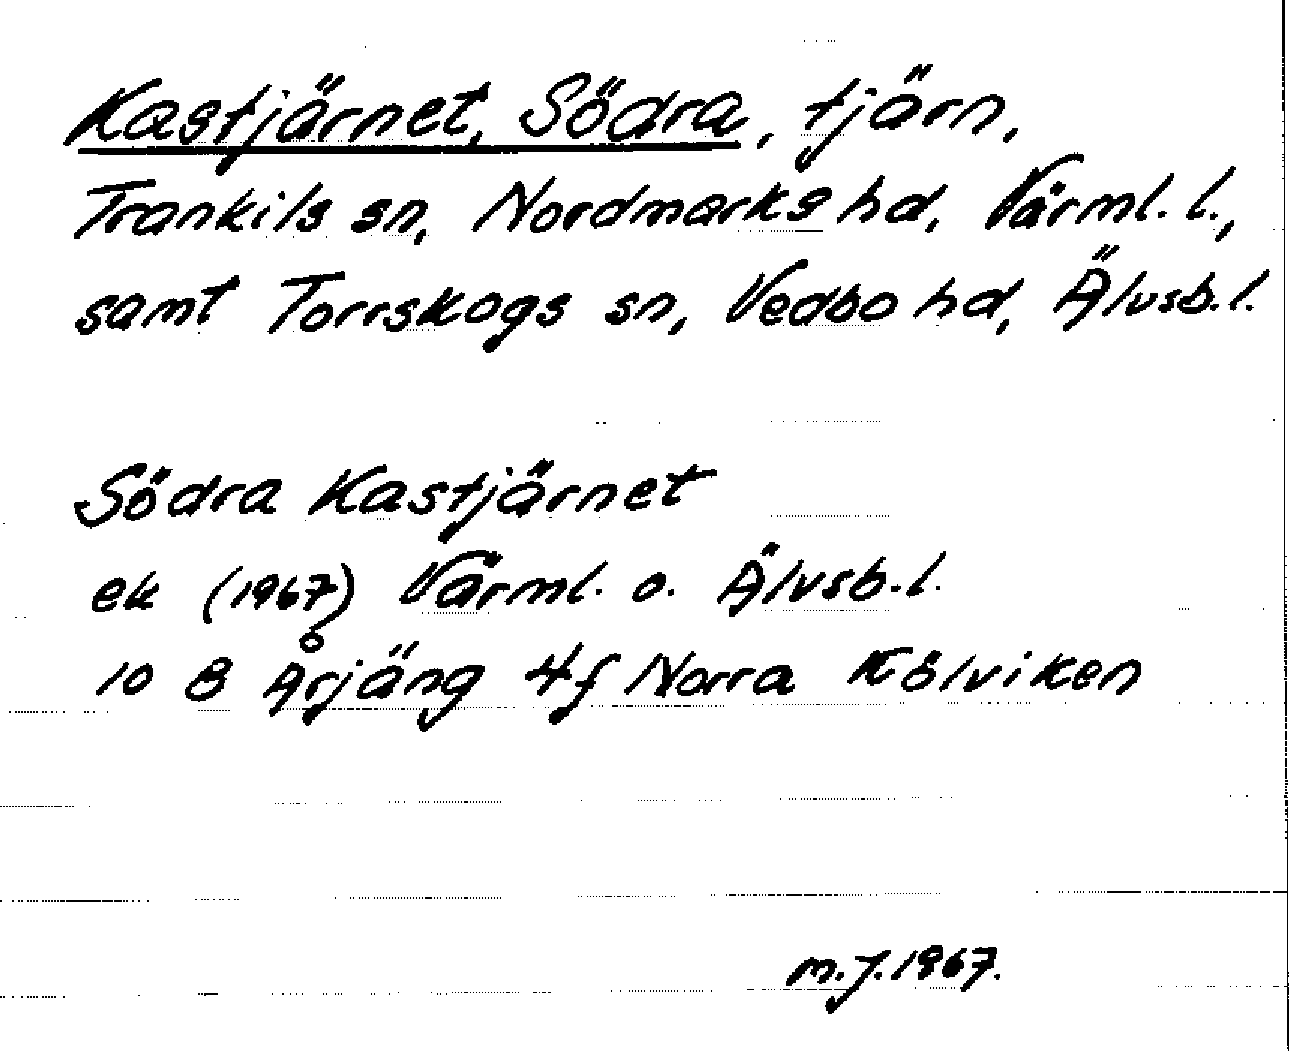 Kastjärnet, Södra, tjärn,
Trankils sn, Nordmarks hd, Värml. l.,
samt Torrskogs sn, Vedbo hd, Älvsb. l.
Södra Kastjärnet
ek (1967) Värml. o. Älvsb. l.
10 B Årjäng 4f Norra Kölviken
m.J. 1967.